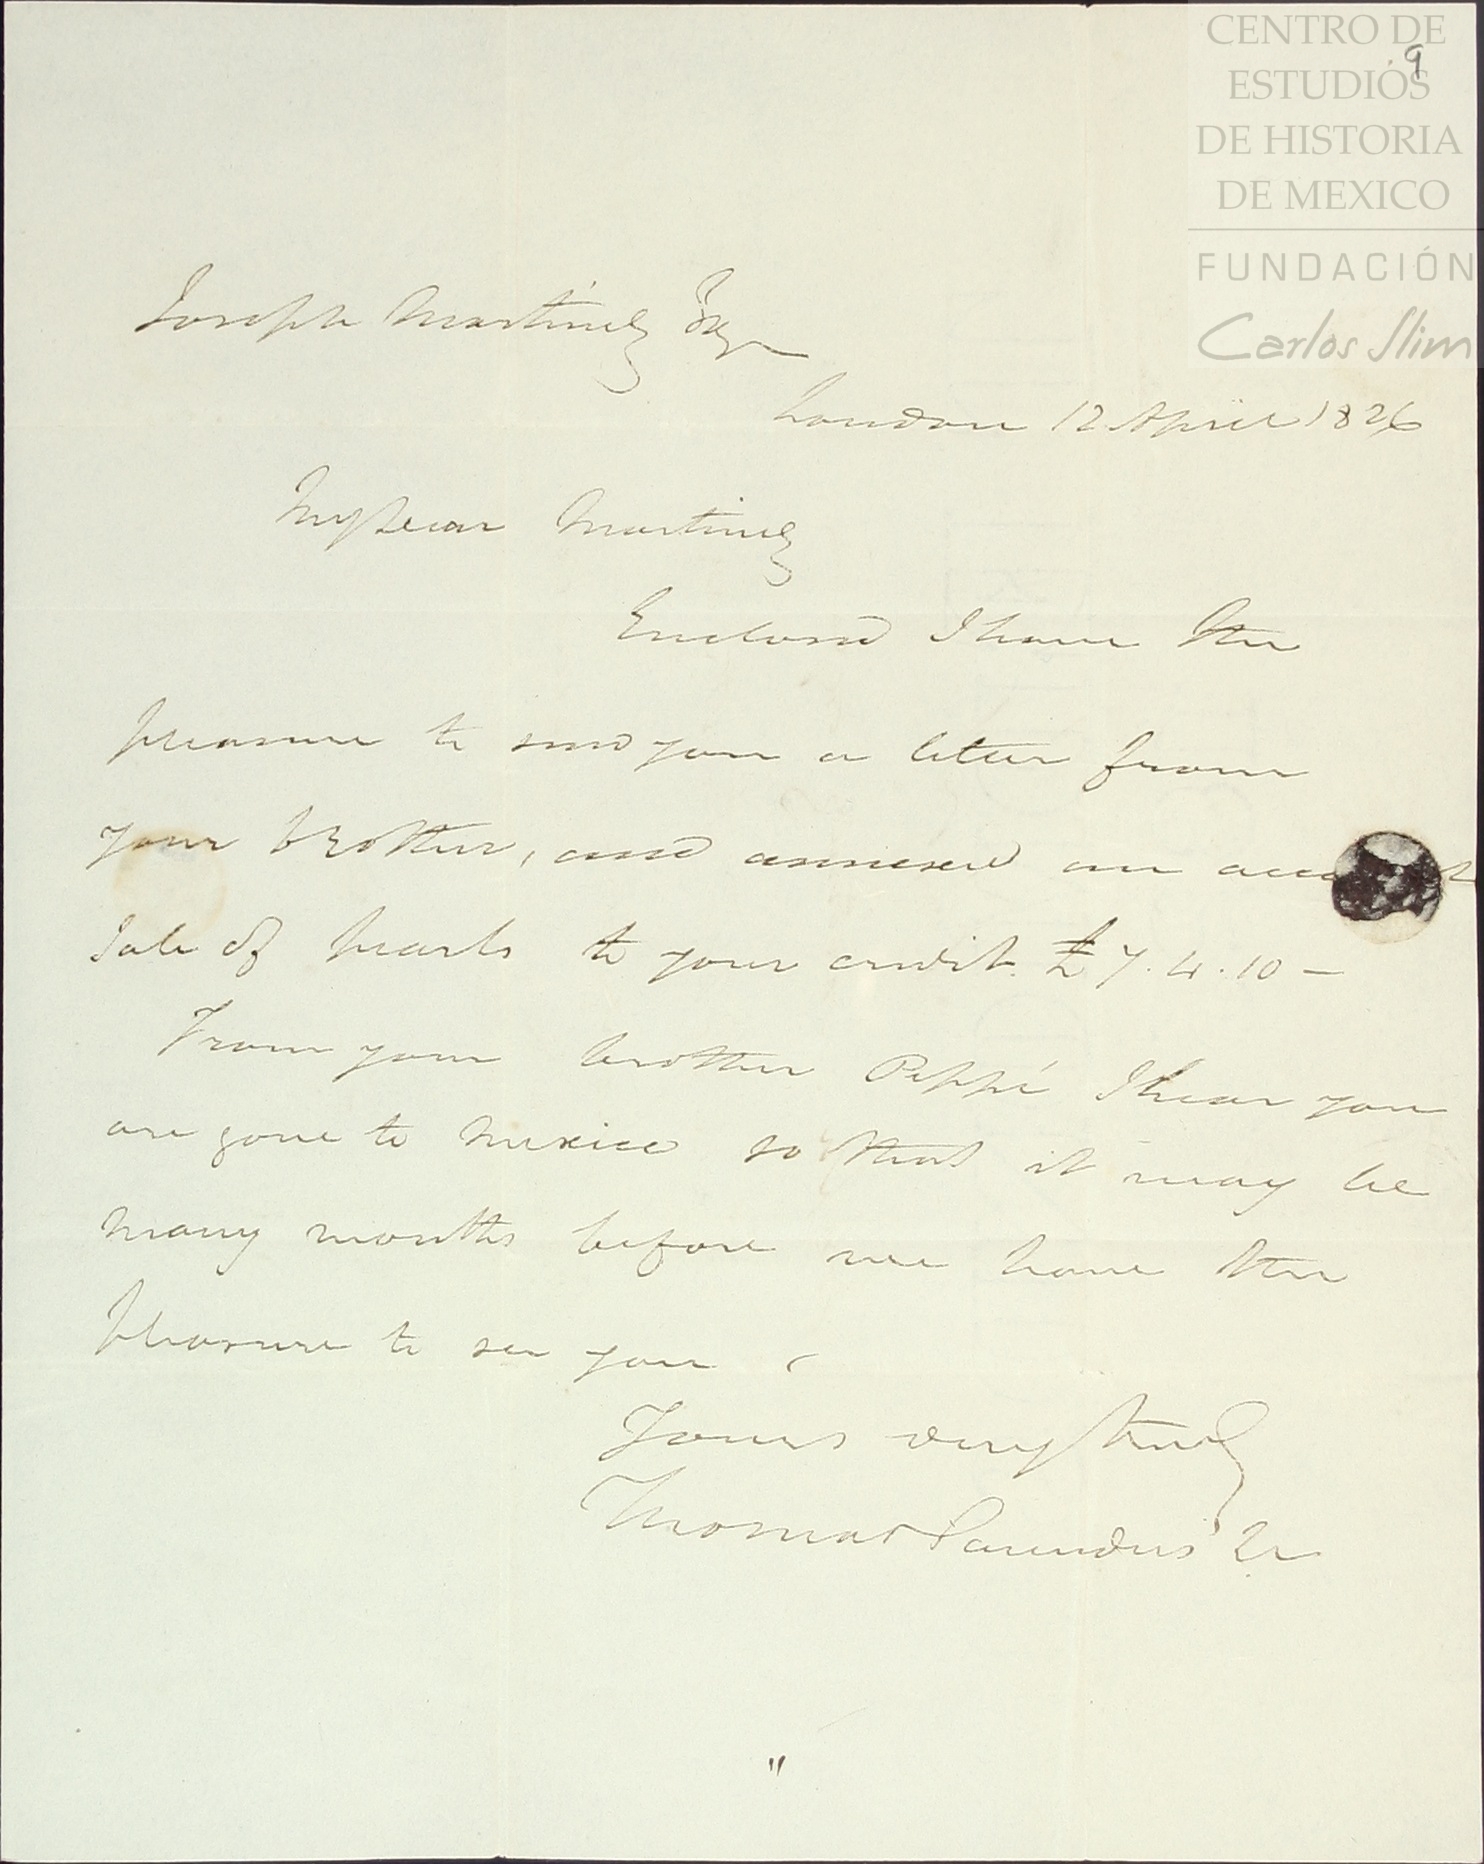 CENTRO DE
ESTUDIOS
DE HISTORIA
DE MEXICO
FUNDACIÓN
Carlos Slim
9
Joseph Martinez Esq
London 12 April 1826
My dear Martinez
Enclosed I have the
pleasure to send you a letter from
your brother, and annexed an
Sale of pearls to your credit £7.4.10 —
From your brother Peppé I hear you
are gone to Mexico so that it may be
many months before we have the
pleasure to see you
Yours very truly
Thomas Saunders Jr
"